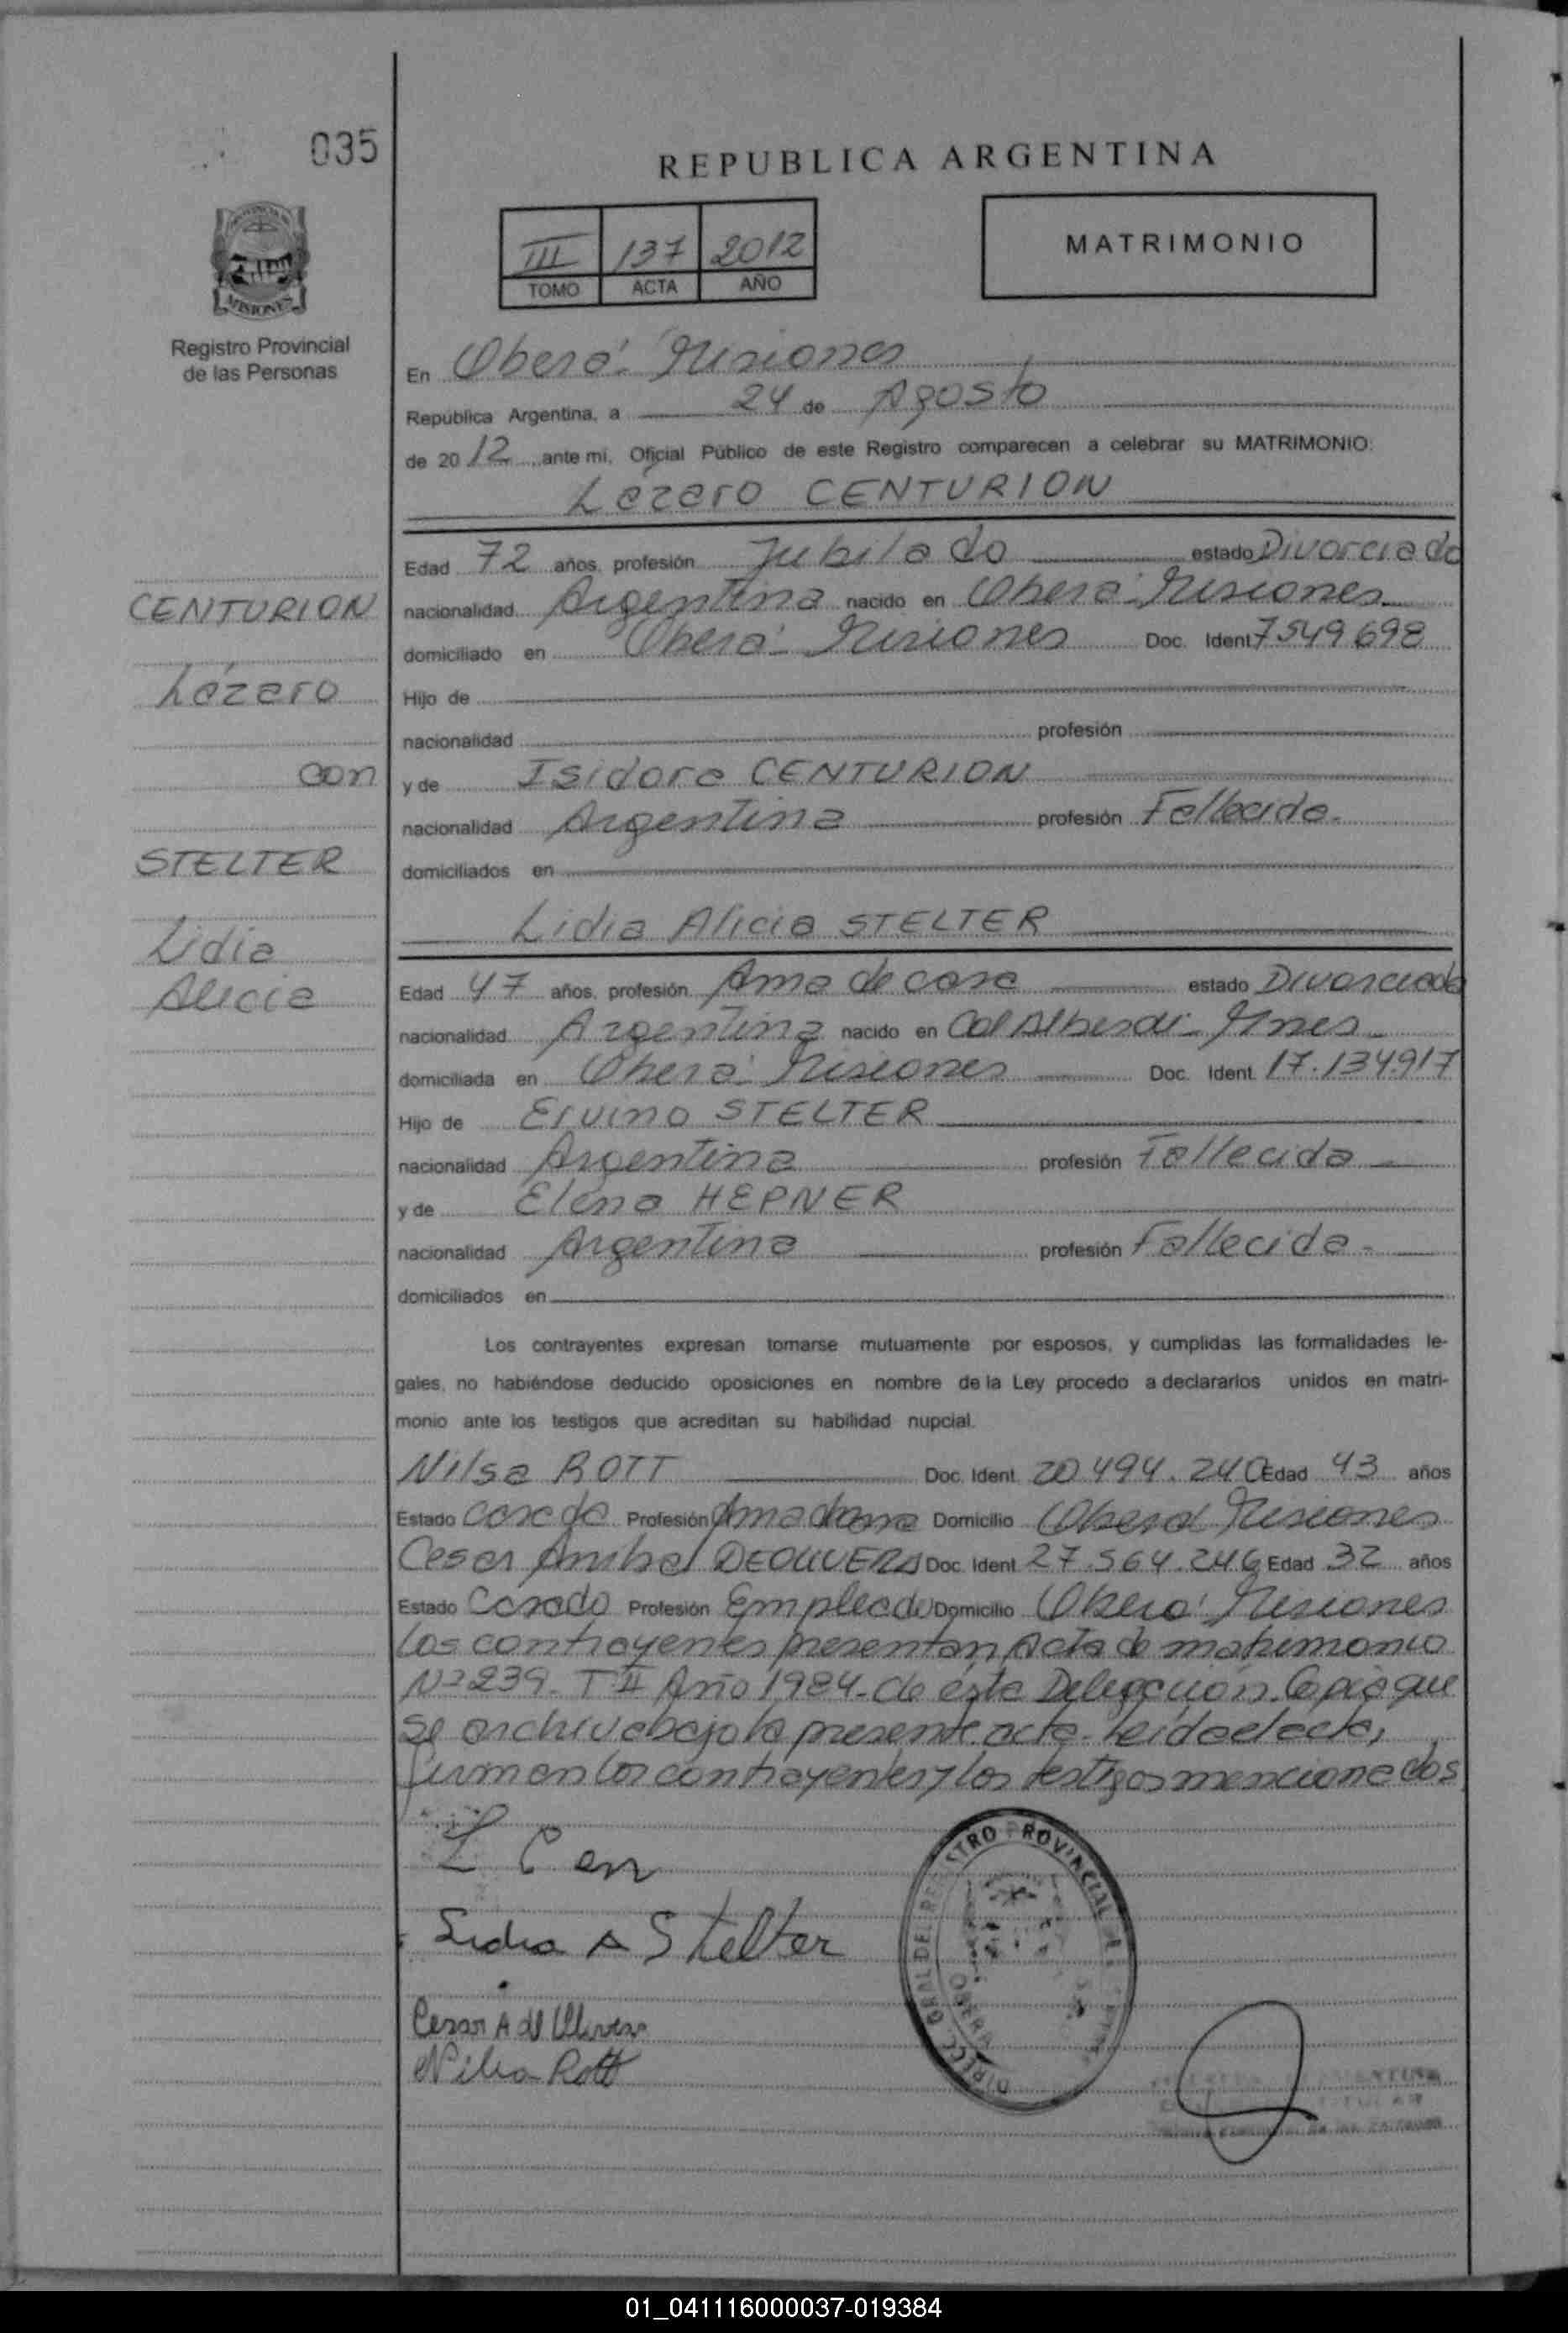 035
REPUBLICA ARGENTINA
III 137 2012
TOMO ACTA AÑO
MATRIMONIO
MISIONES
Registro Provincial
de las Personas
En Oberá - Misiones
República Argentina, a 24 de Agosto
de 20 12 ante mi, Oficial Público de este Registro comparecen a celebrar su MATRIMONIO:
Lázaro CENTURION
Edad 72 años, profesión Jubilado estado Divorciado
CENTURION
nacionalidad Argentina nacido en Oberá - Misiones
domiciliado en Oberá - Misiones Doc. Ident 7549.698
Lázaro
Hijo de
nacionalidad profesión
con
y de Isidora CENTURION
nacionalidad Argentina profesión Fallecida.
STELTER
domiciliados en
Lidia Alicia STELTER
Lidia
Alicia
Edad 47 años, profesión Ama de casa estado Divorciada
nacionalidad Argentina nacido en Col Alberdi - Mnes
domiciliada en Oberá - Misiones Doc. Ident. 17.134.917
Hijo de Ervino STELTER
nacionalidad Argentina profesión Fallecido
y de Elena HEPNER
nacionalidad Argentina profesión Fallecida -
domiciliados en
Los contrayentes expresan tomarse mutuamente por esposos, y cumplidas las formalidades le-
gales, no habiéndose deducido oposiciones en nombre de la Ley procedo a declararlos unidos en matri-
monio ante los testigos que acreditan su habilidad nupcial.
Nilsa ROTT Doc. Ident 20494.240 Edad 43 años
Estado Casada Profesión Ama de casa Domicilio Oberá Misiones
Cesar Anibal DEOLIVERA Doc. Ident 27.564.246 Edad 32 años
Estado Casado Profesión Empleado Domicilio Oberá Misiones
Los contrayentes presentan Acta de matrimonio
Nº 239 - T II Año 1984 - de ésta Delegación. Copia que
se archiva bajo la presente acta. Leida el acta,
firman los contrayentes y los testigos mencionados
L Cen
Lidia A Stelter
Cesar A de Olivera
Nilsa Rott
DIRECC. GRAL DEL REGISTRO PROVINCIAL
OBERA
01_041116000037-019384